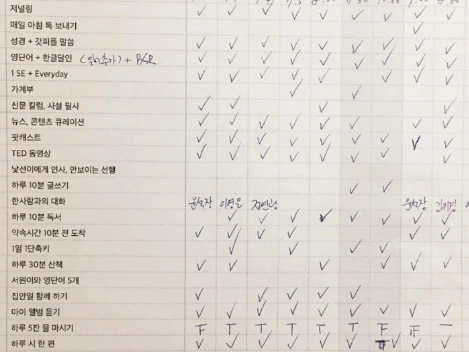 저널링
매일 아침 톡 보내기
성경 + 갓피플 말씀
영단어 + 한글달인 + BSR
1 SE + Everyday
가계부
신문 칼럼, 사설 필사
뉴스, 콘텐츠 큐레이션
팟캐스트
TED 동영상
낯선이에게 인사, 안보이는 선행
하루 10분 글쓰기
한사람과의 대화
하루 10분 독서
약속시간 10분 전 도착
1일 1단축키
하루 30분 산책
서원이와 영단어 5개
집안일 함께 하기
마이 앨범 듣기
하루 5잔 물 마시기 F T T T T T F F
하루 시 한 편